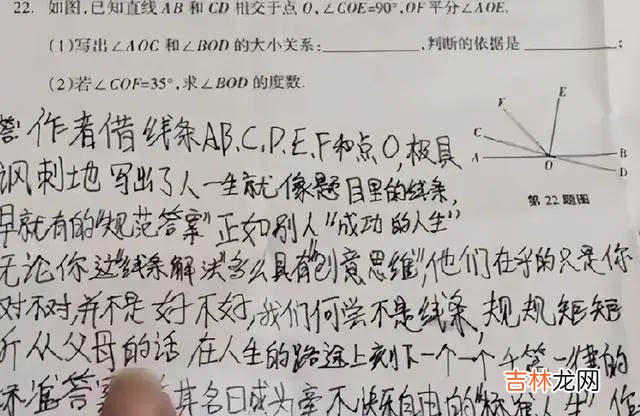 22. 如图,已知直线 AB 和 CD 相交于点 O,∠COE=90°,OF 平分∠AOE.
(1)写出∠AOC 和∠BOD 的大小关系:________,判断的依据是________;
(2)若∠COF=35°,求∠BOD 的度数.
答:作者借线条AB、C、D、E、F和点O,极具
讽刺地 写出了人一生就像题目里的线条,
早就有的"规范答案"正如别人"成功的人生"
无论你这"线条解法"多么具有"创意思维",他们在乎的只是你
对不对,并不是好不好,我们何尝不是线条,规规矩矩
听从父母的话 在人生的路途上刻下一个一个千篇一律的
标准答案 其名曰成为 不快乐自由的"标准
F
E
C
A
O
B
D
第 22 题图
吉林龙网